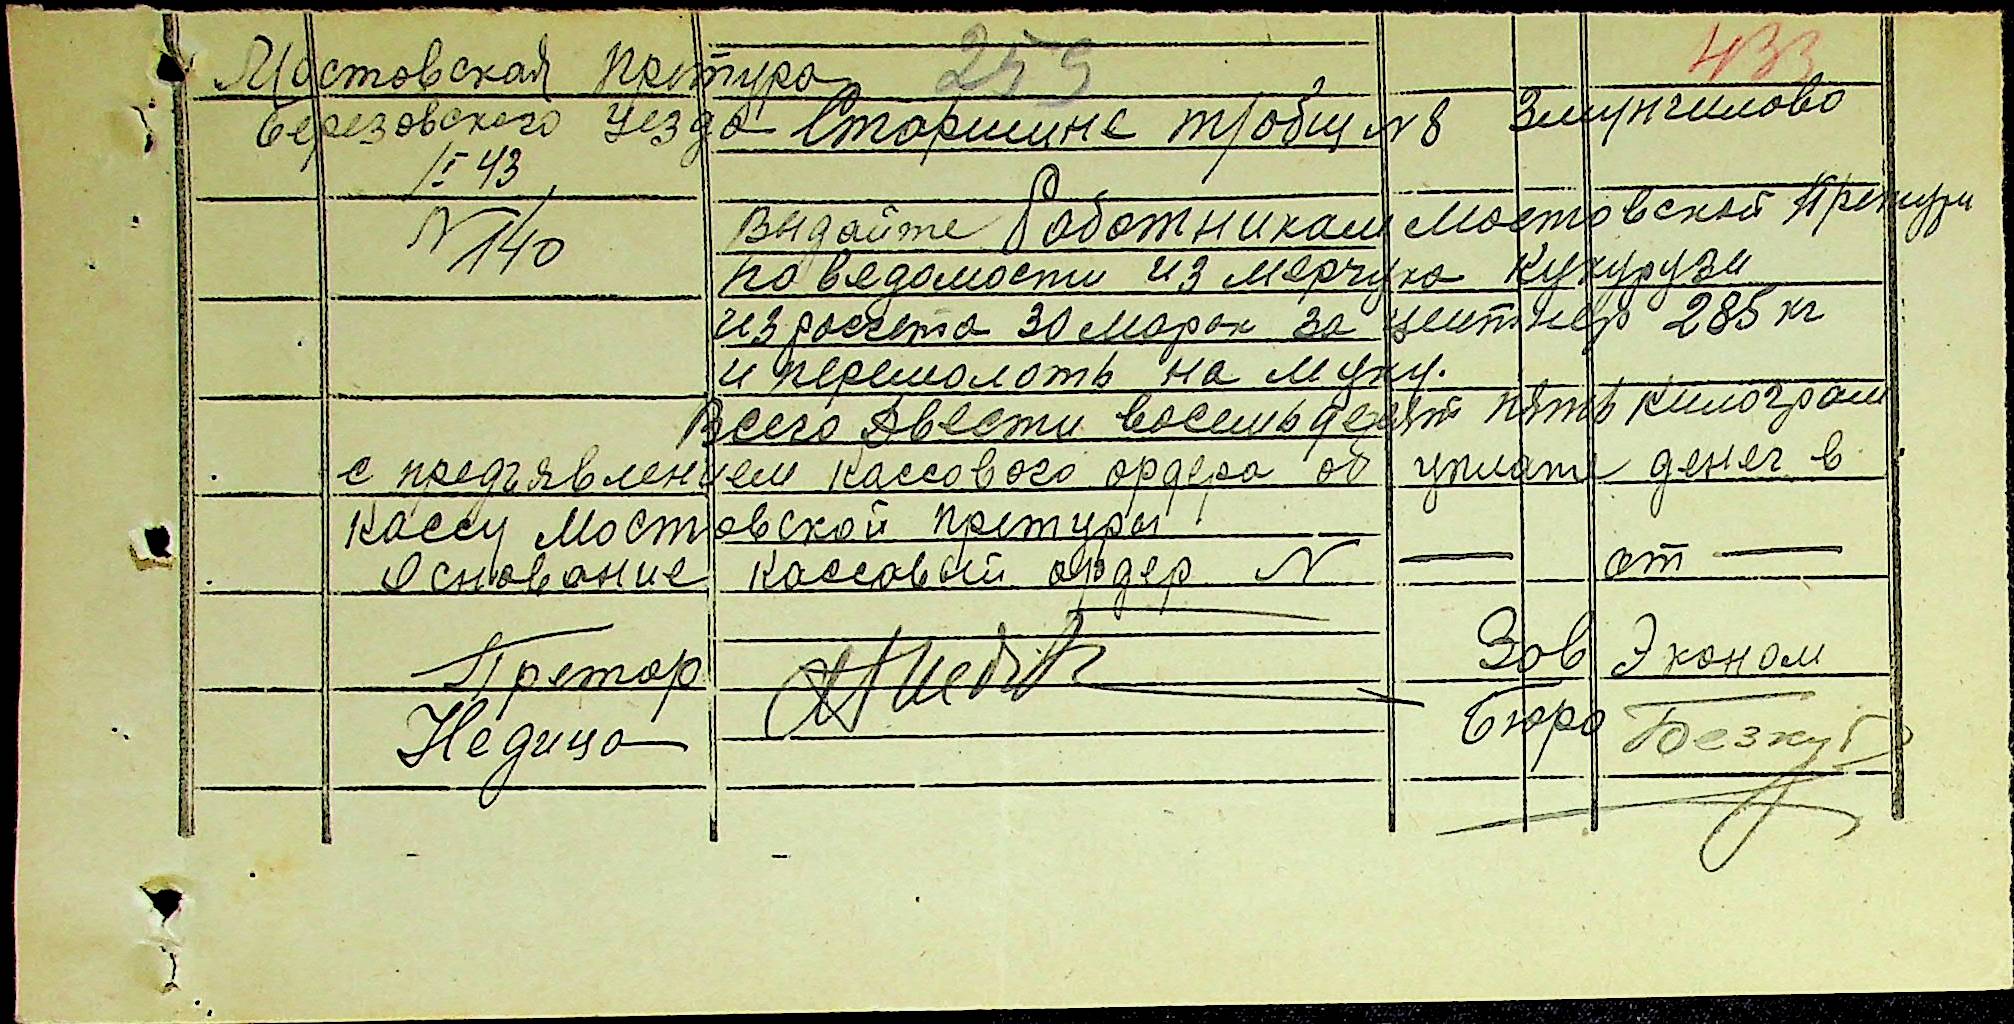 Мостовская претура 259 433
Березовского Уезда Старшине тр/общ N 8
I 43
N 140
Выдайте Работникам Мостовской Претуры
по ведомости из мерчука кукурузи
из расчета 30 марок за центнер 285 кг
и перемолоть на муку.
Всего Двести восемьдесят пять килограм
с предъявлением кассового ордера об уплате денег в
кассу Мостовской претуры
Основание кассовый ордер N — от —
Претор Зав Эконом
Недица Бюро